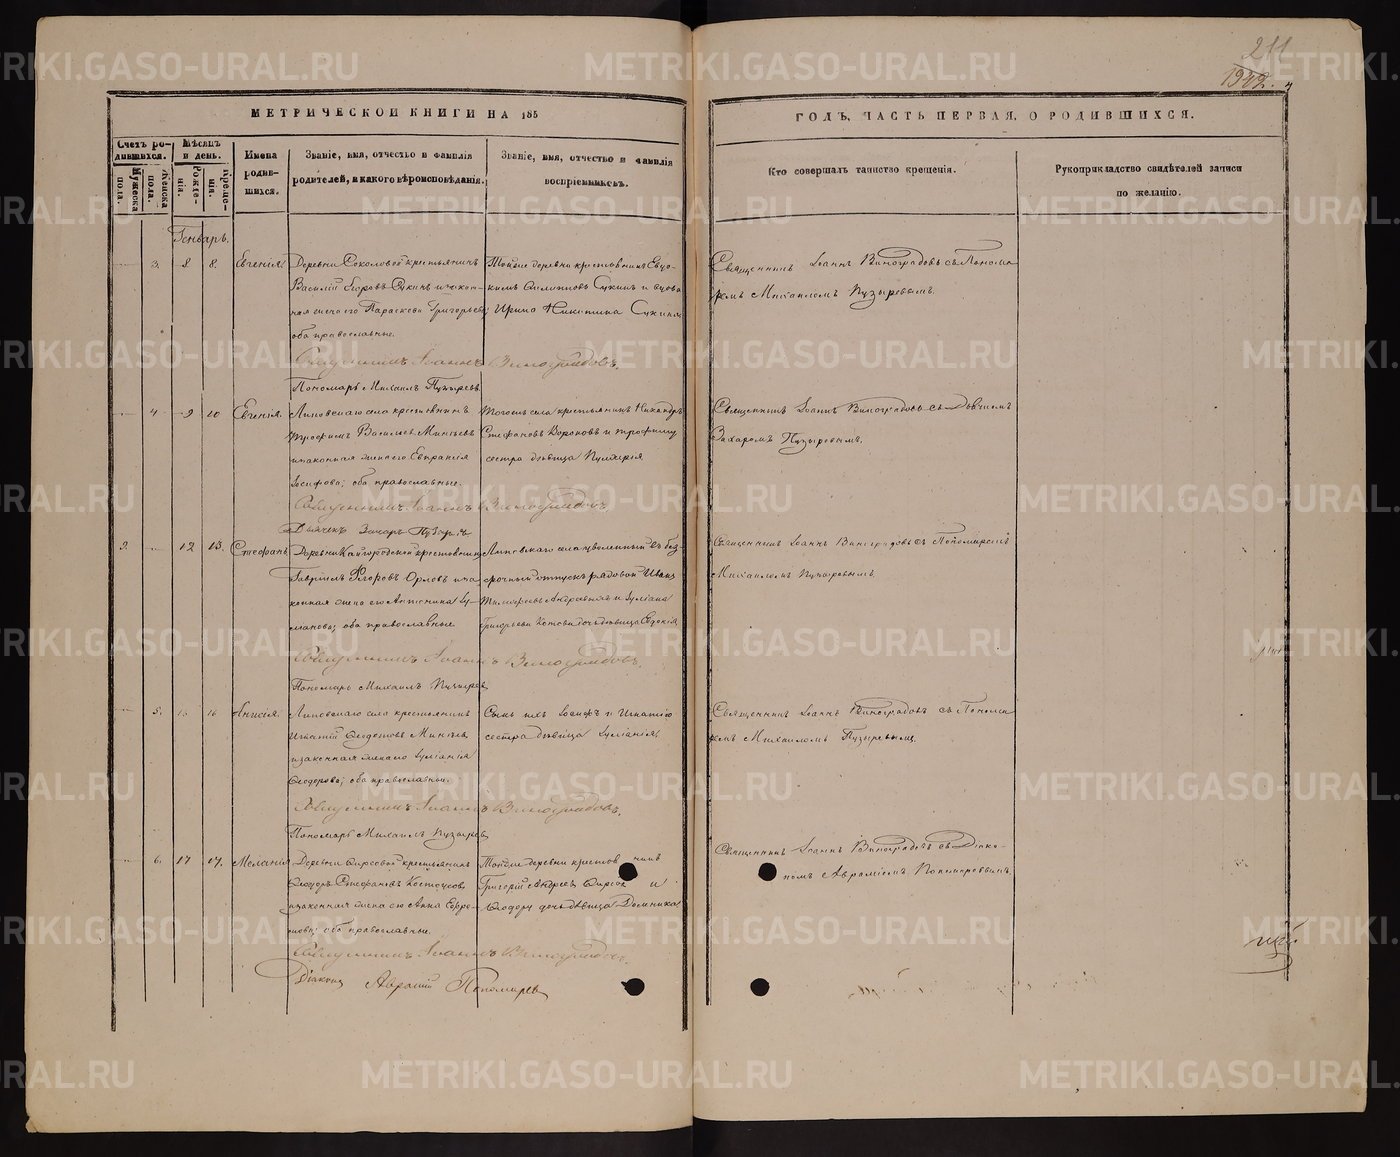 211
1942.
МЕТРИЧЕСКОЙ КНИГИ НА 185
ГОДЪ, ЧАСТЬ ПЕРВАЯ, О РОДИВШИХСЯ.
Счетъ родившихся.
Мужеска пола.
Женска пола.
Мѣсяцъ и день.
Рожденія.
Крещенія.
Имена родившихся.
Званіе, имя, отчество и фамилія
родителей, и какого вѣроисповѣданія.
Званіе, имя, отчество и фамилія
воспріемниковъ.
Кто совершалъ таинство крещенія.
Рукоприкладство свидѣтелей записи
по желанію.
Генварь.
3. 8. 8. Евгенія
Деревни Соколовой крестьянинъ
Василій Егоровъ Сукинъ и закон-
ная жена его Параскева Григорьева;
оба православные.
Тойже деревни крестьянинъ
Сукинъ и вдова
Ирина Никитина Сукина
Священникъ Іоаннъ Виноградовъ съ Понома-
ремъ Михаиломъ Пузыревымъ.
Священникъ Іоаннъ Виноградовъ.
Пономарь Михаилъ Пузыревъ.
4. 9 10 Евгенія.
Липовскаго села крестьянинъ
Трофимъ Васильевъ Минѣевъ
и законная жена его Евпраксія
Іосифова; оба православные.
Тогоже села крестьянинъ Никандръ
Стефановъ Вороновъ и Трофиму
сестра дѣвица Пульхерія
Священникъ Іоаннъ Виноградовъ съ Дьячкомъ
Захаромъ Пузыревымъ.
Священникъ Іоаннъ Виноградовъ.
Дьячекъ Захаръ Пузыревъ
2. 12 13. Стефанъ
Деревни крестьянинъ
Гавріилъ Ѳедоровъ Орловъ и за-
конная жена его Антонина Іу-
ліанова; оба православные.
Липовскаго села уволенный въ без-
срочный отпускъ рядовой Иванъ
Тимоѳеевъ Андреевыхъ и Іуліана
Григорьева Котова дочь дѣвица Евдокія
Священникъ Іоаннъ Виноградовъ съ Пономаремъ
Михаиломъ Пузыревымъ.
Священникъ Іоаннъ Виноградовъ.
Пономарь Михаилъ Пузыревъ
5. 15 16 Анисія
Липовскаго села крестьянинъ
Игнатій Ѳедотовъ Минѣевъ
и законная жена его Іуліанія
Ѳеодорова; оба православные.
Сынъ ихъ Іосифъ и Игнатію
сестра дѣвица Іуліанія
Священникъ Іоаннъ Виноградовъ съ Понома-
ремъ Михаиломъ Пузыревымъ.
Священникъ Іоаннъ Виноградовъ.
Пономарь Михаилъ Пузыревъ
6. 17 17. Меланія
Деревни Фирсовой крестьянинъ
Ѳеодоръ Стефановъ Костоусовъ
и законная жена его Анна Ефре-
мова; оба православные.
Тойже деревни крестьянинъ
Григорій Андреевъ Фирсовъ и
Ѳеодору дочь дѣвица Домника
Священникъ Іоаннъ Виноградовъ съ Діако-
номъ Авраміемъ Пономаревымъ.
Священникъ Іоаннъ Виноградовъ.
Діаконъ Аврамій Пономаревъ
METRIKI.GASO-URAL.RU